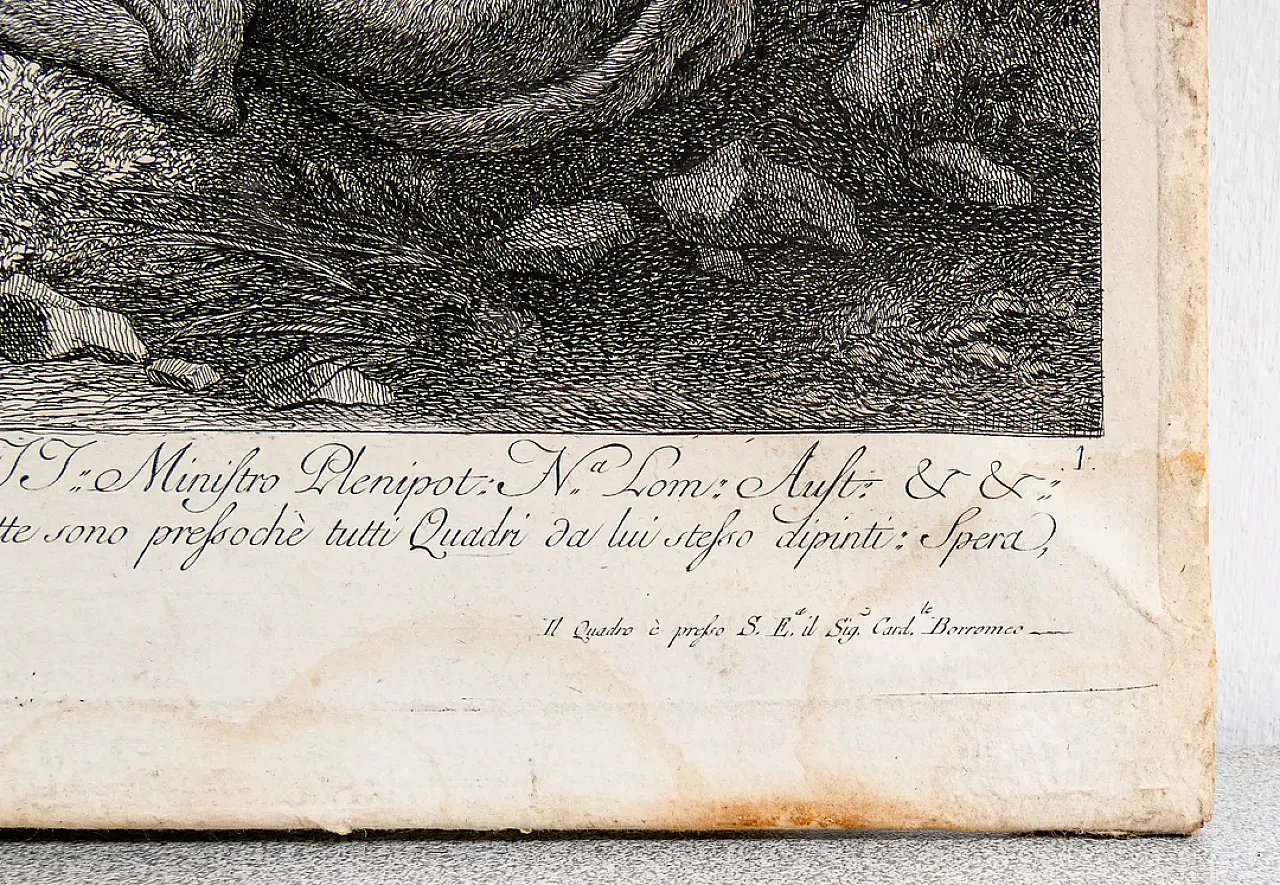 1.
TT.. Miniſtro Plenipot: N.ª Lom: Auſt: & &:
tte sono preſsochè tutti Quadri da lui steſso dipinti: Spera,
Il Quadro è preſso S. E.ª il Sig.ʳ Card.ˡᵉ Borromeo